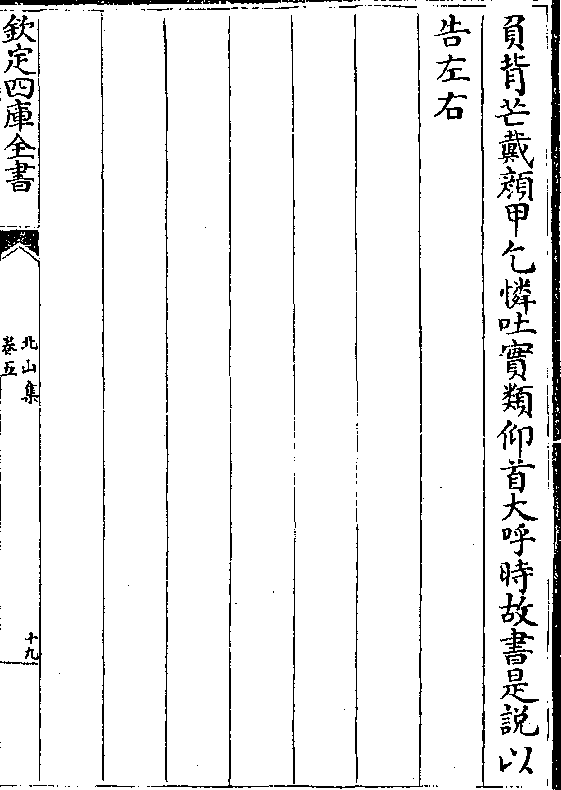 負背芒戴顔甲乞憐吐實類仰首大呼時故書是説以
告左右
欽定四庫全書
北山集
卷五
十九